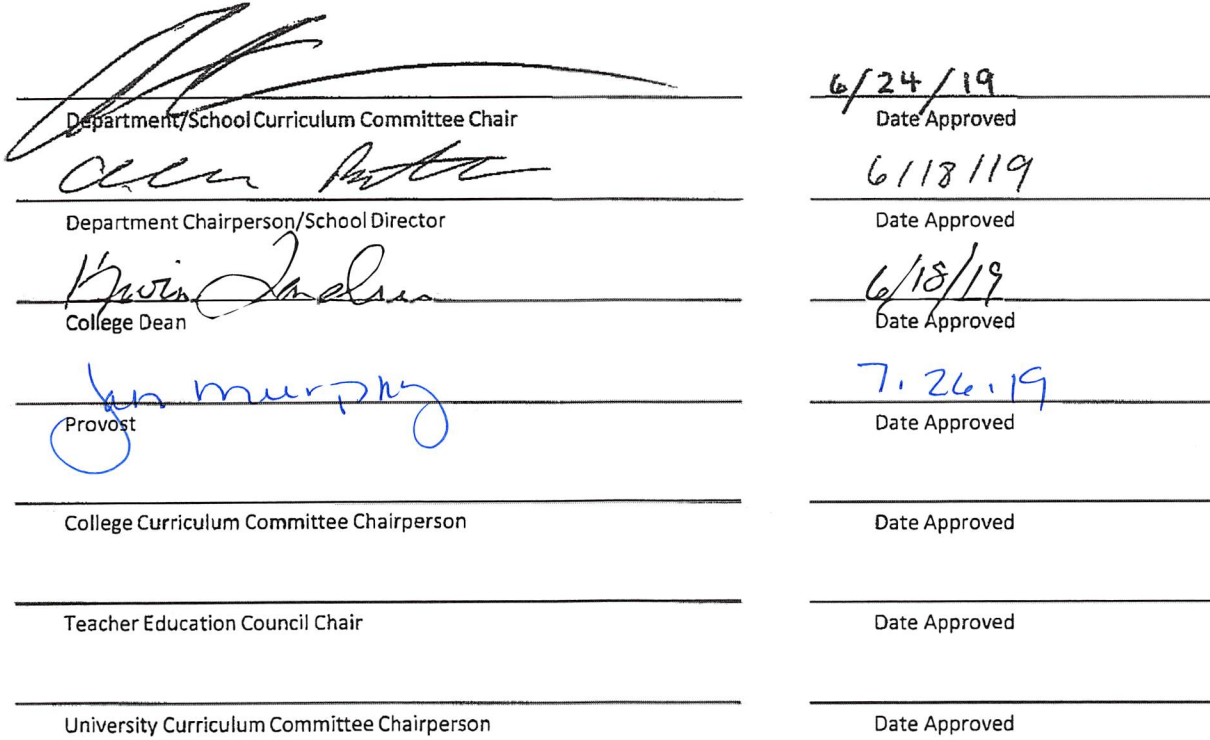 6/24/19
Department/School Curriculum Committee Chair Date Approved
6/18/19
Department Chairperson/School Director Date Approved
Kevin 6/18/19
College Dean Date Approved
Jan Murphy 7.26.19
Provost Date Approved
College Curriculum Committee Chairperson Date Approved
Teacher Education Council Chair Date Approved
University Curriculum Committee Chairperson Date Approved